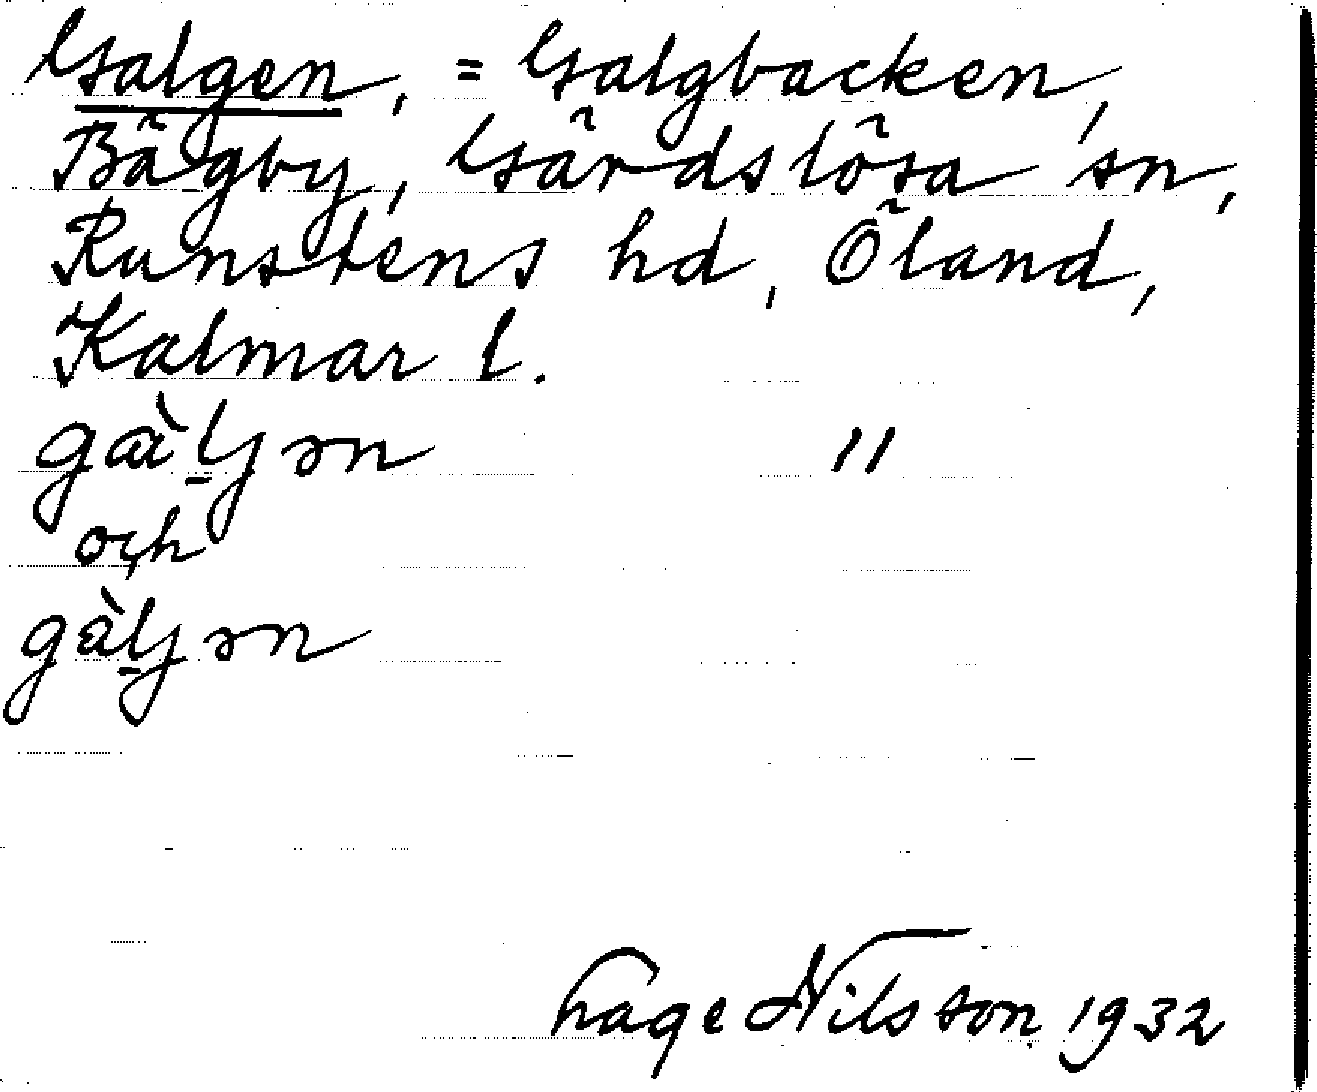 Galgen, = Galgbacken,
Bägby, Gärdslösa sn,
Runstens hd, Öland,
Kalmar l.
gàl̠jən "
och
gàl̠jən
Hage Nilsson 1932